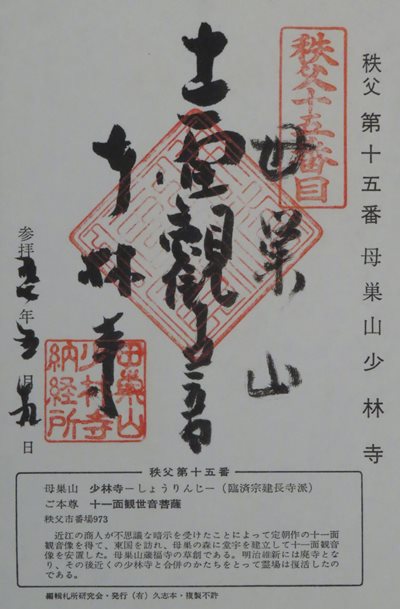 秩父 第十五番 母巣山少林寺
秩父十五番目
母巣山
十一面観世音
少林寺
母巣山
少林寺
納経所
参拝 年 五月 日
秩父第十五番
母巣山 少林寺−しょうりんじ−(臨済宗建長寺派)
ご本尊 十一面観世音菩薩
秩父市番場973
近江の商人が不思議な暗示を受けたことによって定朝作の十一面
観音像を得て、東国を訪れ、母巣の森に堂宇を建立して十一面観音
像を安置した。母巣山蔵福寺の草創である。明治維新には廃寺とな
り、その後近くの少林寺と合併のかたちをとって霊場は復活したの
である。
編輯札所研究会・発行(有)久志本・複製不許